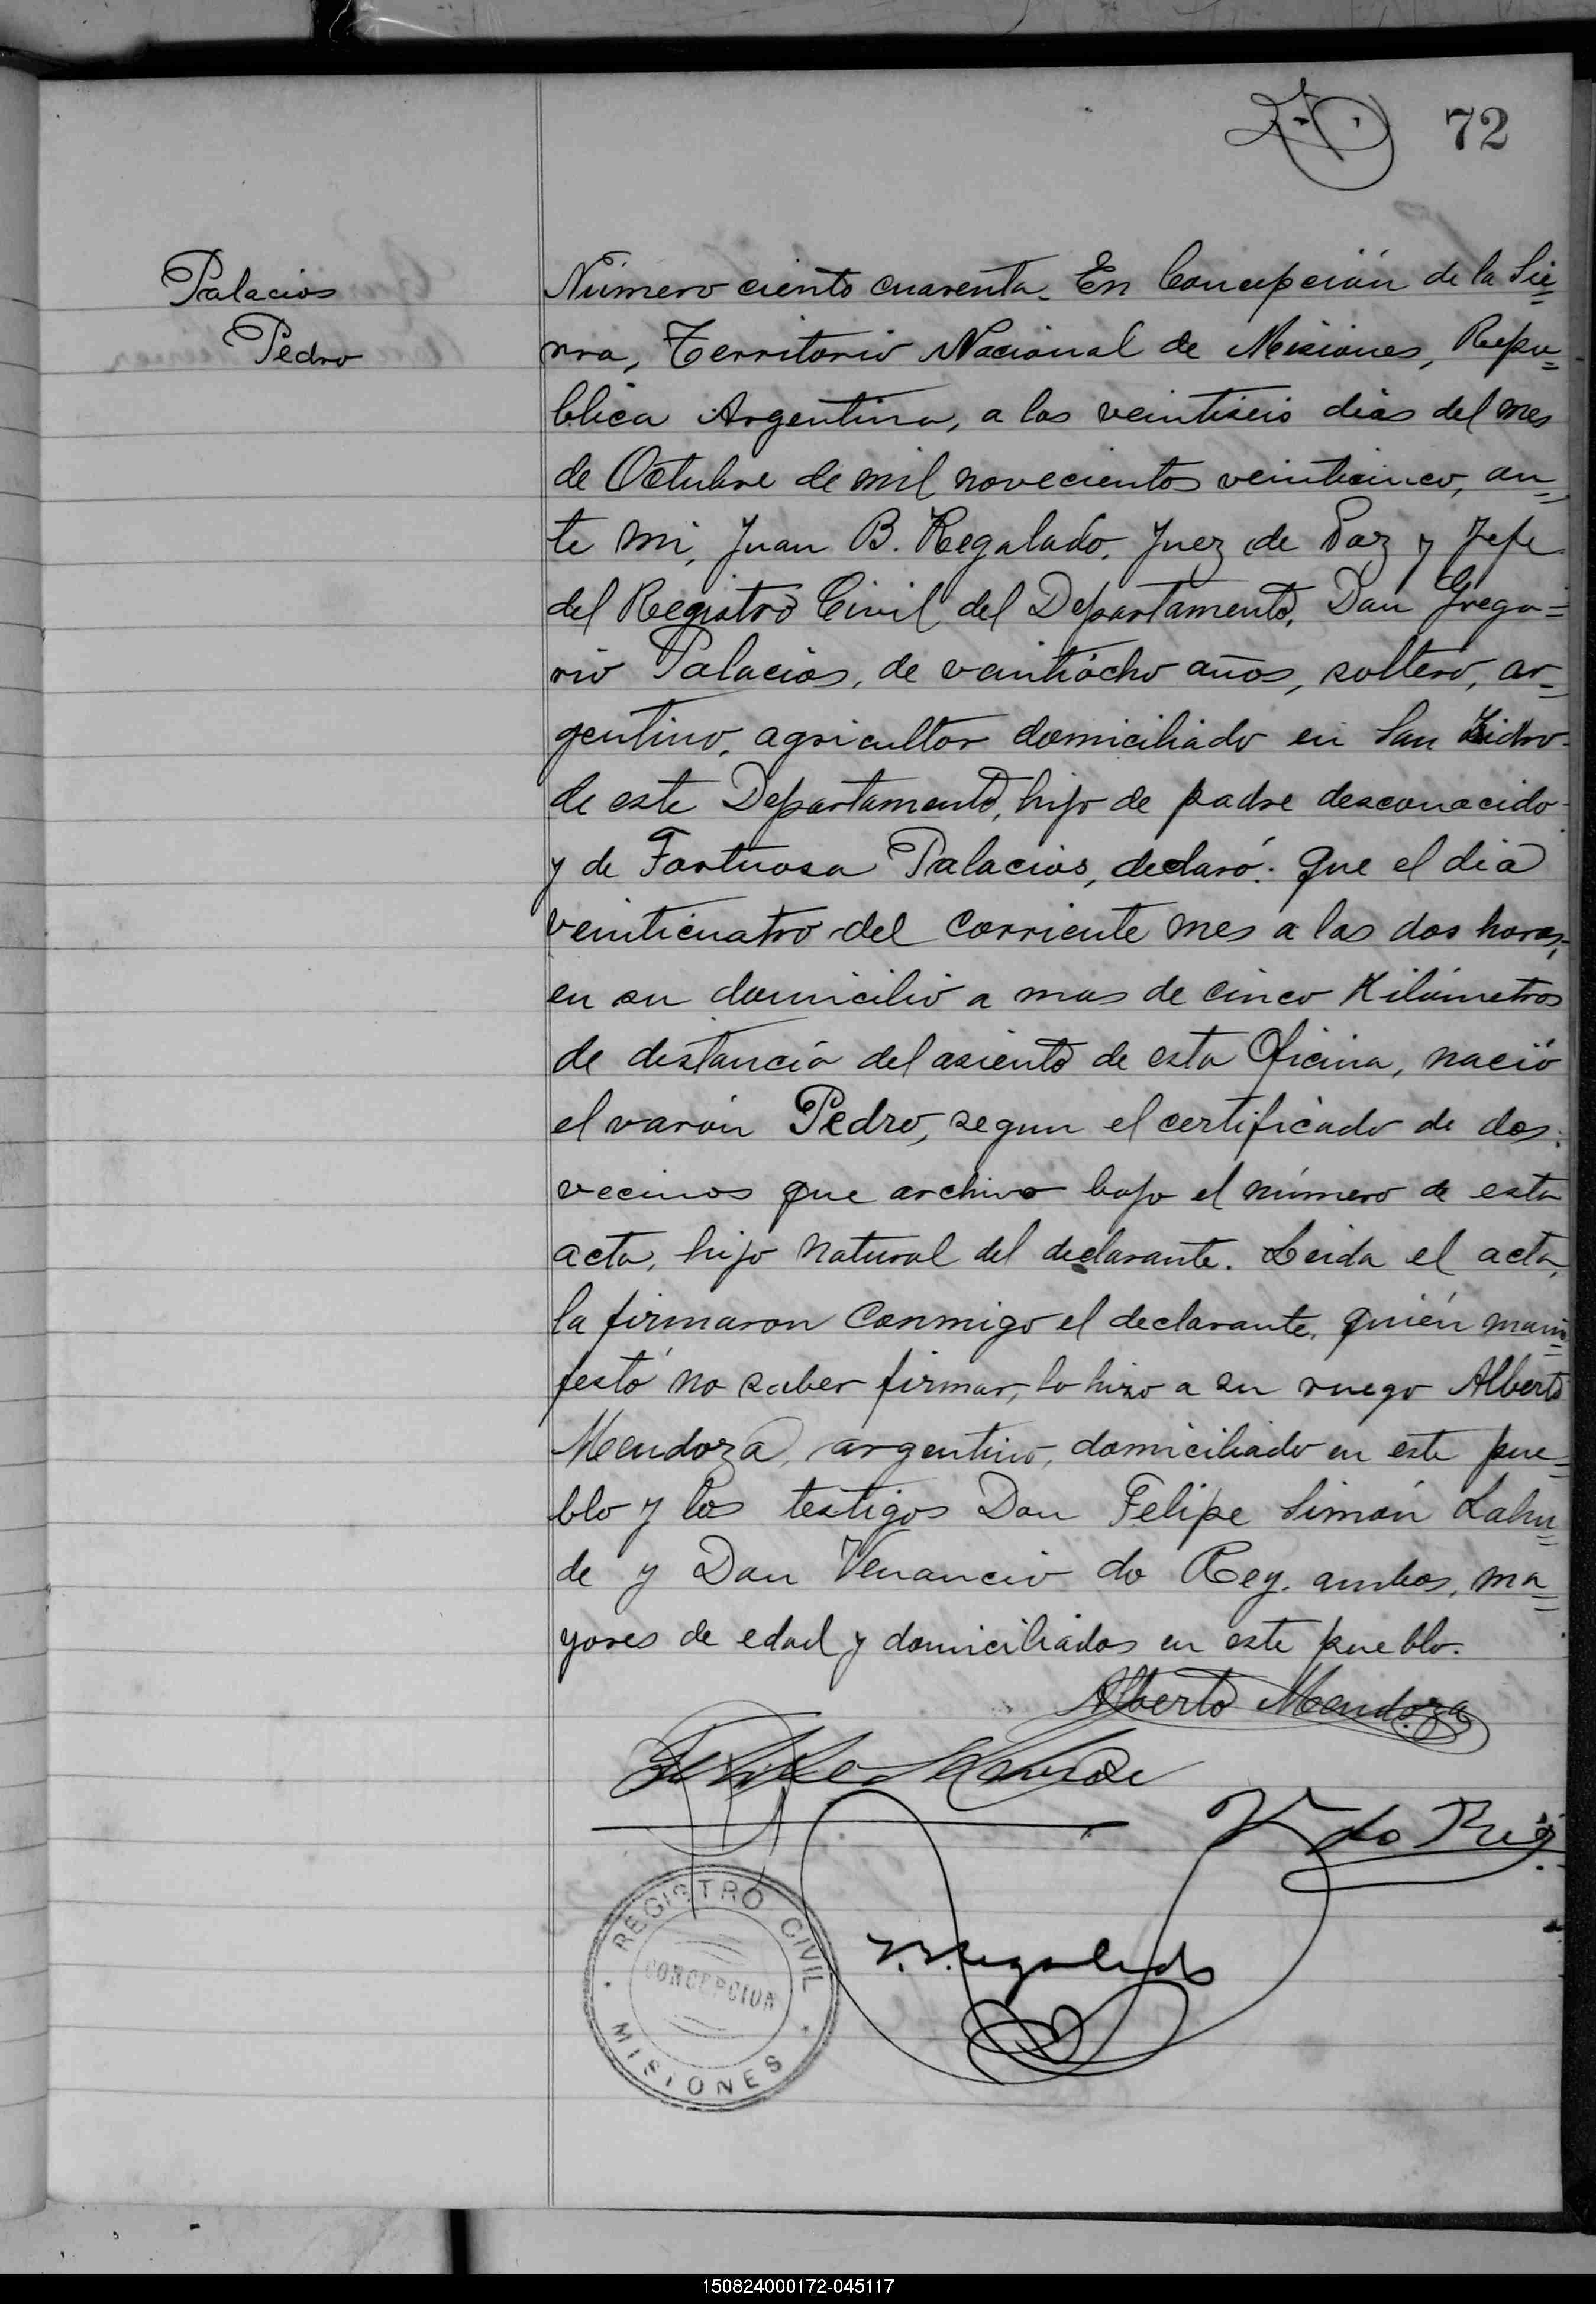 72
Palacios
Pedro
Número ciento cuarenta. En Concepción de la Sie=
rra, Territorio Nacional de Misiones, Repu=
blica Argentina, a los veintiseis dias del mes
de Octubre de mil novecientos veinticinco, an=
te mi, Juan B. Regalado, Juez de Paz y Jefe
del Registro Civil del Departamento, Don Grego=
rio Palacios, de veintiocho años, soltero, ar=
gentino, agricultor domiciliado en San Isidro
de este Departamento, hijo de padre desconocido
y de Fortuosa Palacios, declaró: Que el dia
veinticuatro del corriente mes a las dos horas,
en su domicilio a mas de cinco Kilómetros
de distancia del asiento de esta Oficina, nació
el varón Pedro, segun el certificado de dos
vecinos que archivo bajo el número de esta
acta, hijo natural del declarante. Leida el acta,
la firmaron conmigo el declarante, quién mani=
festó no saber firmar, lo hizo a su ruego Alberto
Mendoza, argentino, domiciliado en este pue=
blo y los testigos Don Felipe Simón Lahu=
de y Don Venancio do Rey, ambos, ma=
yores de edad y domiciliados en este pueblo.
Alberto Mendoza
Felipe S Lahude
V do Rey
J.B.Regalado
REGISTRO CIVIL
CONCEPCION
MISIONES
150824000172-045117